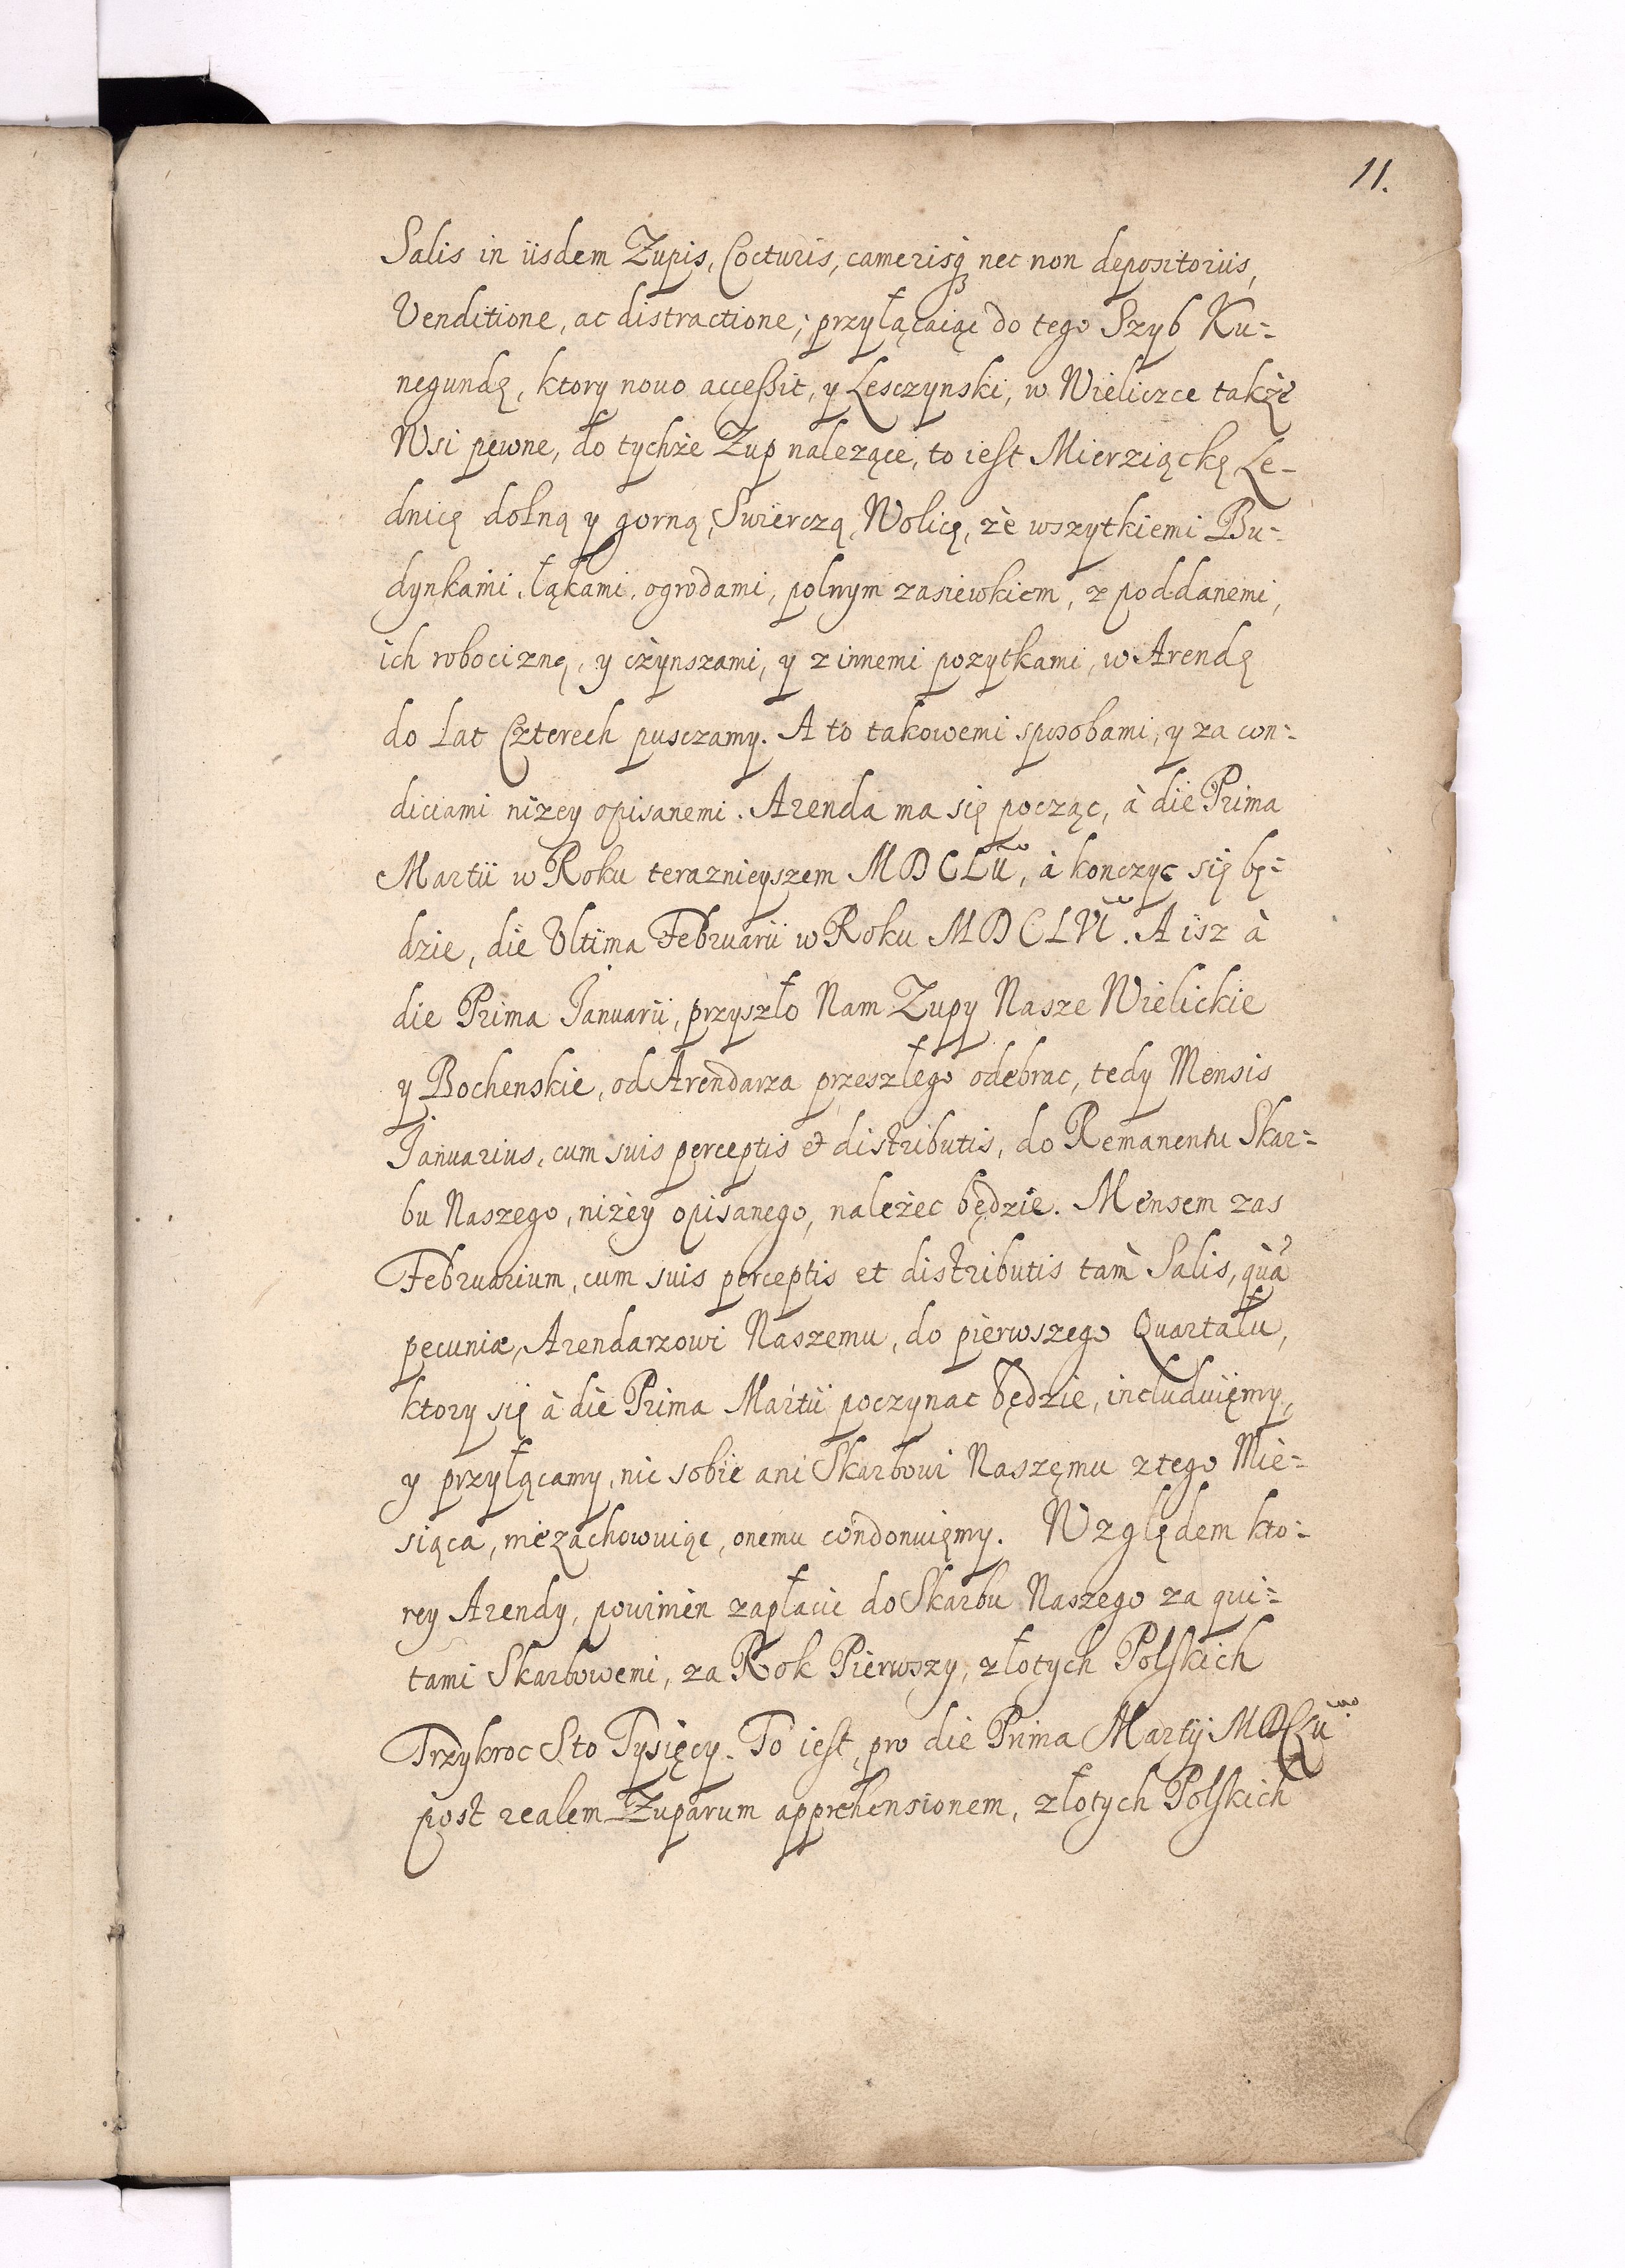 11.
Salis in iisdem Zupis, Cocturis, camerisq; nec non depositoriis,
Venditione, ac distractione; przyłącaiąc do tego Szyb Ku-
negundę, ktory nouo accessit, y Lesczynski, w Wieliczce także
Wsi pewne, do tychże Zup nalezące, to iest Mierziączkę Le-
dnicę dolną y gorną, Swierczą, Wolicę, ze wszytkiemi Bu-
dynkami, łąkami, ogrodami, polnym zasiewkiem, z poddanemi,
ich robocizną, y czynszami, y z innemi pozytkami, w Arendę
do Lat Czterech pusczamy. A to takowemi sposobami, y za con-
diciami niżey opisanemi. Arenda ma się począc, à die Prima
Martii w Roku teraznieyszem MDCLII, à konczyc się bę-
dzie, die Vltima Februarii w Roku MDCLVI. A isz à
die Prima Januarii, przyszło Nam Zupy Nasze Wielickie
y Bochenskie, od Arendarza przeszłego odebrac, tedy Mensis
Januarius, cum suis perceptis et distributis, do Remanentu Skar-
bu Naszego, niżey opisanego, należec będzie. Mensem zas
Februarium, cum suis perceptis et distributis tam Salis, quà
pecuniæ, Arendarzowi Naszemu, do pierwszego Quartału,
ktory się à die Prima Martii poczynac będzie, includuięmy,
y przyłącamy, nic sobie ani Skarbowi Naszęmu z tego Mie-
siąca, niezachowuiąc, onemu condonuięmy. Względem kto-
rey Arendy, powinien zapłacic do Skarbu Naszego za qui-
tami Skarbowemi, za Rok Pierwszy, złotych Polskich
Trzykroc Sto Tysięcy. To iest, pro die Prima Martij MDCLII
post realem Zuparum apprehensionem, złotych Polskich